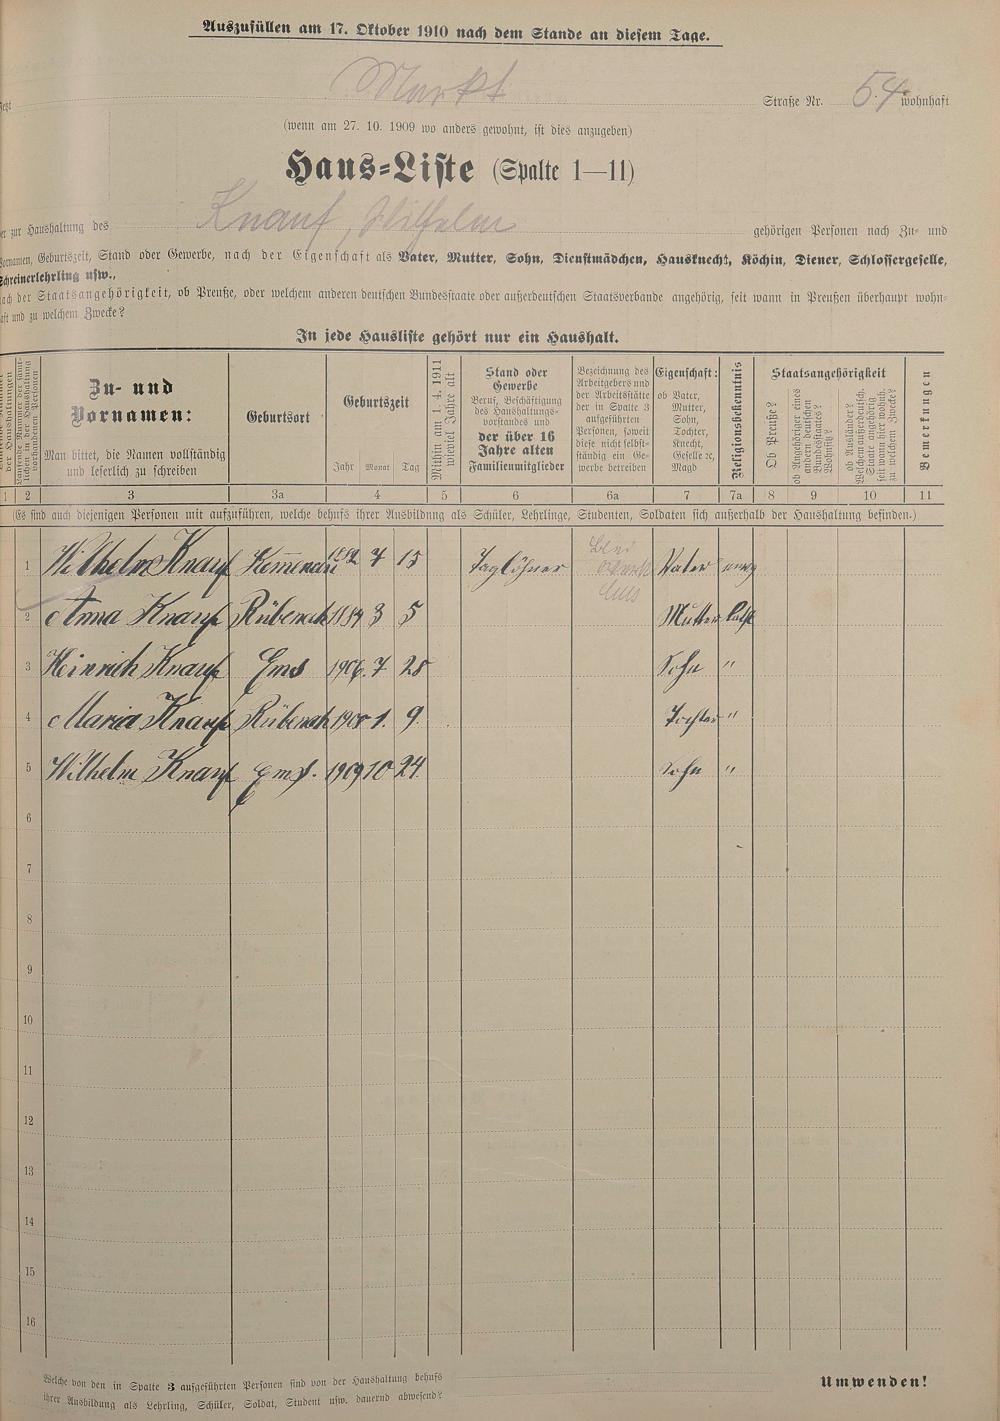 Auszufüllen am 17. Oktober 1910 nach dem Stande an diesem Tage.
Markt Straße Nr. 54 wohnhaft
(wenn am 27. 10. 1909 wo anders gewohnt, ist dies anzugeben)
Haus-Liste (Spalte 1—11)
zur Haushaltung des Knauf, Wilhelm gehörigen Personen nach Zu- und
Vornamen, Geburtszeit, Stand oder Gewerbe, nach der Eigenschaft als Vater, Mutter, Sohn, Dienstmädchen, Hausknecht, Köchin, Diener, Schlossergeselle,
Schreinerlehrling usw.,
nach der Staatsangehörigkeit, ob Preuße, oder welchem anderen deutschen Bundesstaate oder außerdeutschen Staatsverbande angehörig, seit wann in Preußen überhaupt wohn-
haft und zu welchem Zwecke?
In jede Hausliste gehört nur ein Haushalt.
der Haushaltungen
Laufende Nummer der sämt-
lichen in der Haushaltung
vorhandenen Personen
Zu- und
Vornamen:
Man bittet, die Namen vollständig
und leserlich zu schreiben
Geburtsort
Geburtszeit
Jahr Monat Tag
Mithin am 1. 4. 1911
wieviel Jahre alt
Stand oder
Gewerbe
Beruf, Beschäftigung
des Haushaltungs-
vorstandes und
der über 16
Jahre alten
Familienmitglieder
Bezeichnung des
Arbeitgebers und
der Arbeitsstätte
der in Spalte 3
aufgeführten
Personen, soweit
diese nicht selbst-
ständig ein Ge-
werbe betreiben
Eigenschaft:
ob Vater,
Mutter,
Sohn,
Tochter,
Knecht,
Geselle ec,
Magd
Religionsbekenntnis
Staatsangehörigkeit
Ob Preuße?
ob Angehöriger eines
andern deutschen
Bundesstaates?
Wohnsitz?
ob Ausländer?
Welchem außerdeutsch.
Staate angehörig
seit wann hier wohnh.
zu welchem Zwecke?
Bemerkungen
1 2 3 3a 4 5 6 6a 7 7a 8 9 10 11
(Es sind auch diejenigen Personen mit aufzuführen, welche behufs ihrer Ausbildung als Schüler, Lehrlinge, Studenten, Soldaten sich außerhalb der Haushaltung befinden.)
1 Wilhelm Knauf 7 15 Taglöhner Blei Ems Vater evang
2 Anna Knauf Rübenach 1884 3 5 Mutter kath
3 Heinrich Knauf Ems 1906. 7 28 Sohn "
4 Maria Knauf Rübenach 1908 1. 9. Tochter "
5 Wilhelm Knauf Ems. 1909 10 24. Sohn "
6
7
8
9
10
11
12
13
14
15
16
Welche von den in Spalte 3 aufgeführten Personen sind von der Haushaltung behufs
ihrer Ausbildung als Lehrling, Schüler, Soldat, Student usw. dauernd abwesend?
Umwenden!